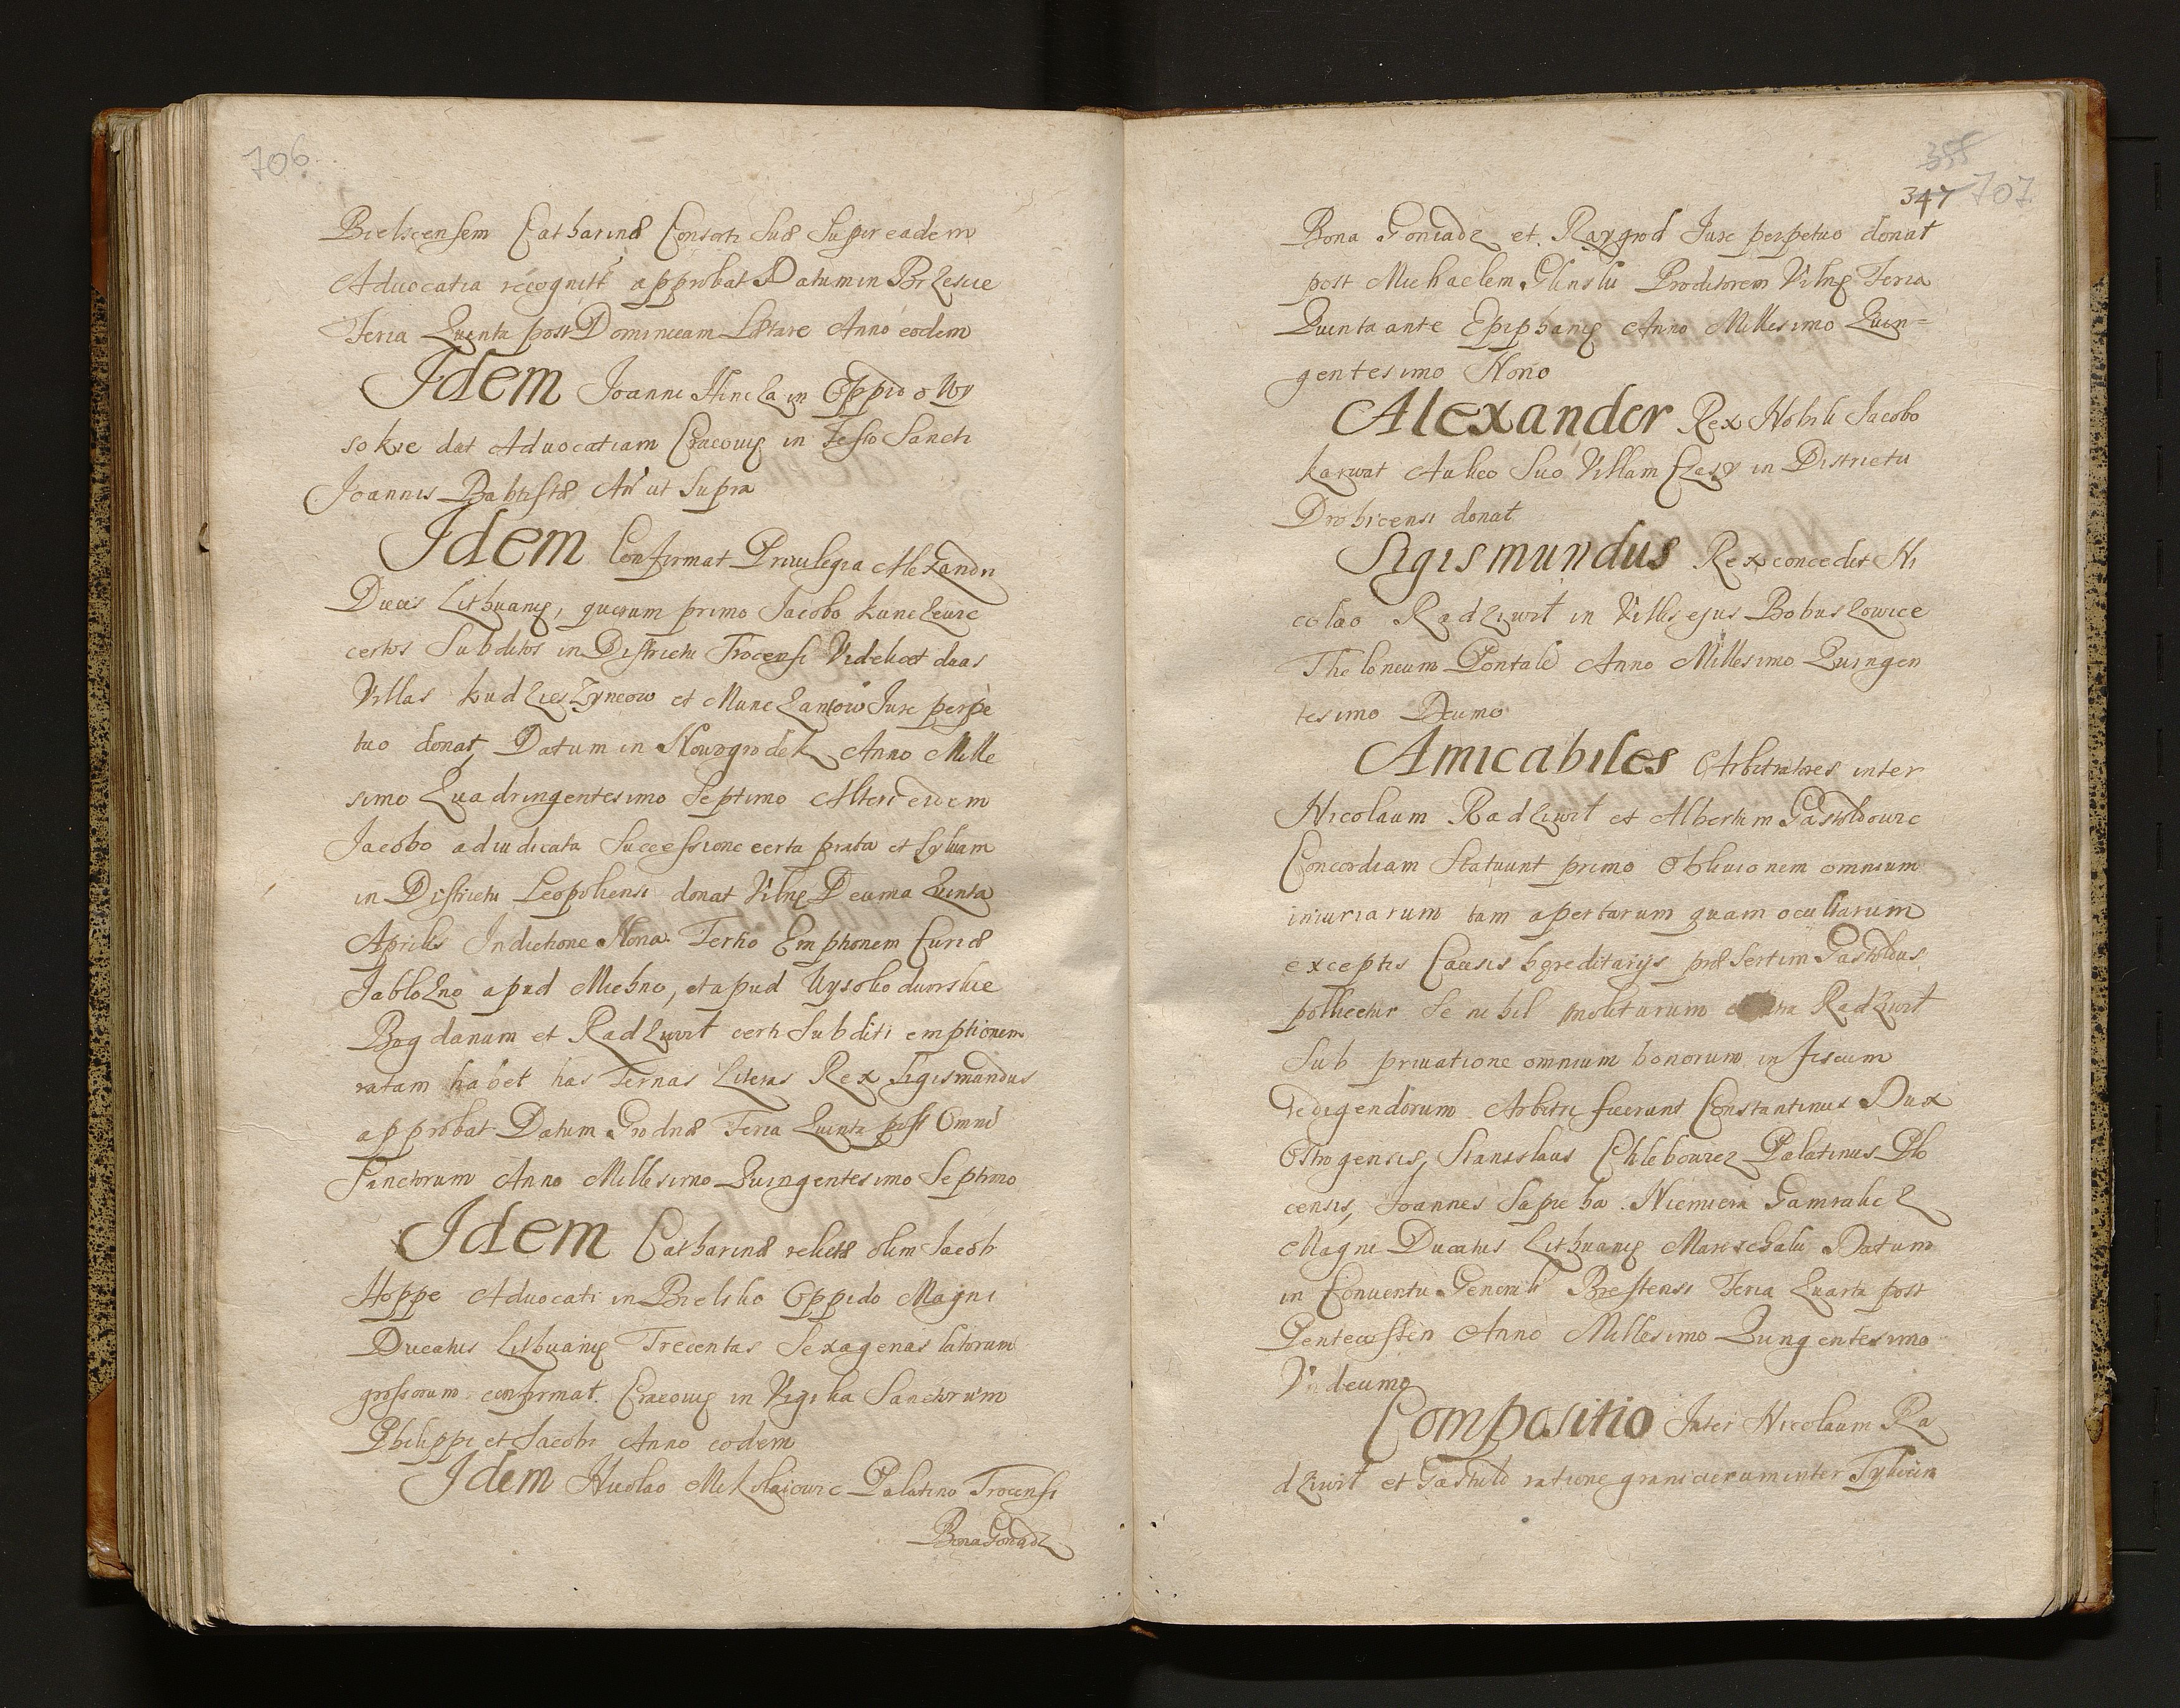 706.
Bielscensem Catharinæ Consorti Suæ Super eadem
Advocatia recognitt approbat Datum in Brzescie
Feria Quinta post Dominicam Lætare Anno eodem
Idem Joanni Hincza in Oppido Wy
sokie dat Advocatiam Cracovię in Festo Sancti
Joannis Baptistæ An ut Supra
Idem Confirmat Privilegia Alexandri
Ducis Lithuanię, quorum primo Jacobo Kunczewic
certos Subditos in Districtu Trocensi Videlicet duas
Villas Kudzieszyncow et Munczancow Jure perpe
tuo donat, Datum in Nowogrodek Anno Mille
simo Quadringentesimo Septimo Altero eidem
Jacobo adiudicata Successione certa prata et Sylvam
in Districtu Leopoliensi donat Vilnę Decima Quinta
Aprilis Indictione Nona. Tertio Emptionem Curiæ
Jablozno apud Michno, et apud Wysokodworskie
Bogdanum et Radziwił certi Subditi emptionem
ratam habet has Ternas Literas Rex Sigismundus
approbat Datum Grodnæ Feria Quinta post Omniu
Sanctorum Anno Millesimo Quingentesimo Septimo
Idem Catharinæ relictæ olim Jacobi
Hoppe Advocati in Bielsko Oppido Magni
Ducatus Lithuanię Trecentas Sexagenas latorum
grossorum confirmat. Cracovię in Vigilia Sanctorum
Philippi et Jacobi Anno eodem
Idem Nicolao Mikolaiowic Palatino Trocensi
Bona Goniadz
355
347 707.
Bona Goniadz et Raygrod Jure perpetuo donat
post Michaelem Glinski Proditorem Vilnę Feria
Quinta ante Epiphanię Anno Millesimo Quin=
gentesimo Nono
Alexander Rex Nobili Jacobo
Karwat Aulico Suo Villam Czesy in Districtu
Drohicensi donat
Sigismundus Rex concedit Ni
colao Radziwił in Villis ejus Bobuszowice
Theloneum Pontale Anno Millesimo Quingen
tesimo Decimo
Amicabiles Arbitratores inter
Nicolaum Radziwił et Albertum Gastoldowic
Concordiam Statuunt primo Oblivionem omnium
iniuriarum tam apertarum quam ocultarum
exceptis Causis hęreditarijs præsertim Gastoldus
pollicetur Se nihil moliturum Radziwił
Sub privatione omnium bonorum in fiscum
redigendorum Arbitri fuerunt Constantinus Dux
Ostrogensis, Stanislaus Chlebowicz Palatinus Plo
censis, Joannes Sapieha Niemiera Gamralicz
Magni Ducatus Lithuanię Marschalci Datum
in Conventu Generali Brestensi Feria Quarta post
Pentecosten Anno Millesimo Quingentesimo
Vndecimo
Compositio Inter Nicolaum Ra
dziwił et Gastuld ratione granicierum inter Tykocin